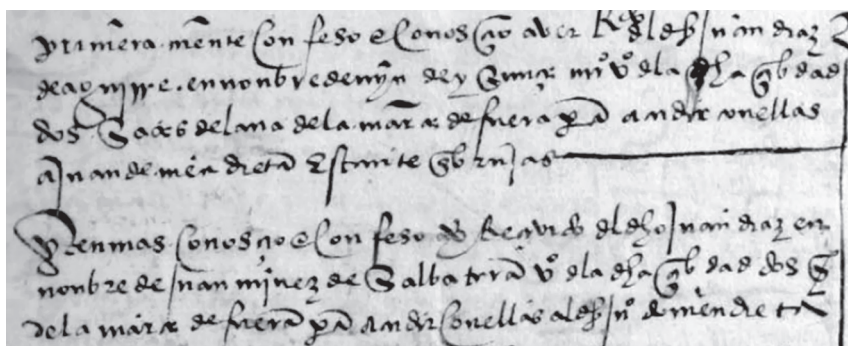 primera mente con feso e conosco aver Rdo del dho juan diaz
de aguirre. en nonbre de myn dey vo dla dha çbdad
dos Sacas de lana de la marca de fuera pa andar con ellas
a juan de mendieta Estante en brujas
yten mas conosco e con feso aver Reçivido del dho juan diaz en
nonbre de juan minez de Salbatrra vo dla dha çbdad dos S
de la marca de fuera pa andar con ellas al dho juo de mendieta